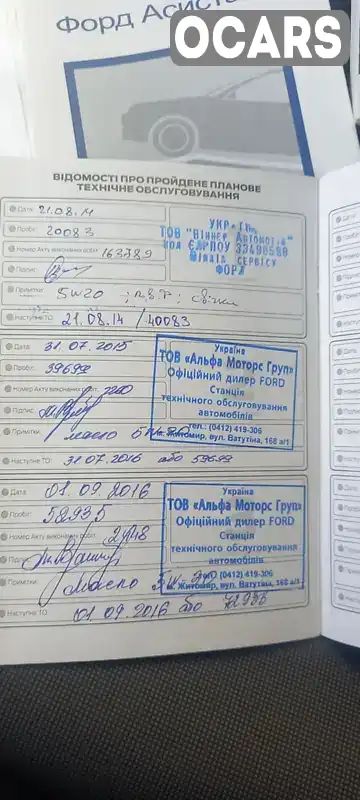 OCARS
Форд Асиста
ВІДОМОСТІ ПРО ПРОЙДЕНЕ ПЛАНОВЕ
ТЕХНІЧНЕ ОБСЛУГОВУВАННЯ
Дата: 21.08.14
Пробіг: 20083
Номер Акту виконаних робіт: 163789
Підпис:
Примітки: 5W20
Наступне ТО: 21.08.14 / 40083
УКРАЇНА
ТОВ "Віннер Автомотів"
код ЄДРПОУ 33490589
Відділ СЕРВІСУ
ФОРД
Дата: 31.07.2015
Пробіг: 39699
Номер Акту виконаних робіт:
Підпис:
Примітки: масло
Наступне ТО: 31.07.2016 або 59699
Україна
ТОВ «Альфа Моторс Груп»
Офіційний дилер FORD
Станція
технічного обслуговування
автомобілів
тел.: (0412) 419-306
м. Житомир, вул. Ватутіна, 168 а/1
Дата: 01.09.2016
Пробіг: 52935
Номер Акту виконаних робіт: 2948
Підпис:
Примітки: Масло
Наступне ТО: 01 09.2016 або 72935
Україна
ТОВ «Альфа Моторс Груп»
Офіційний дилер FORD
Станція
технічного обслуговування
автомобілів
(0412) 419-306
м. Житомир, вул. Ватутіна, 168 а/1